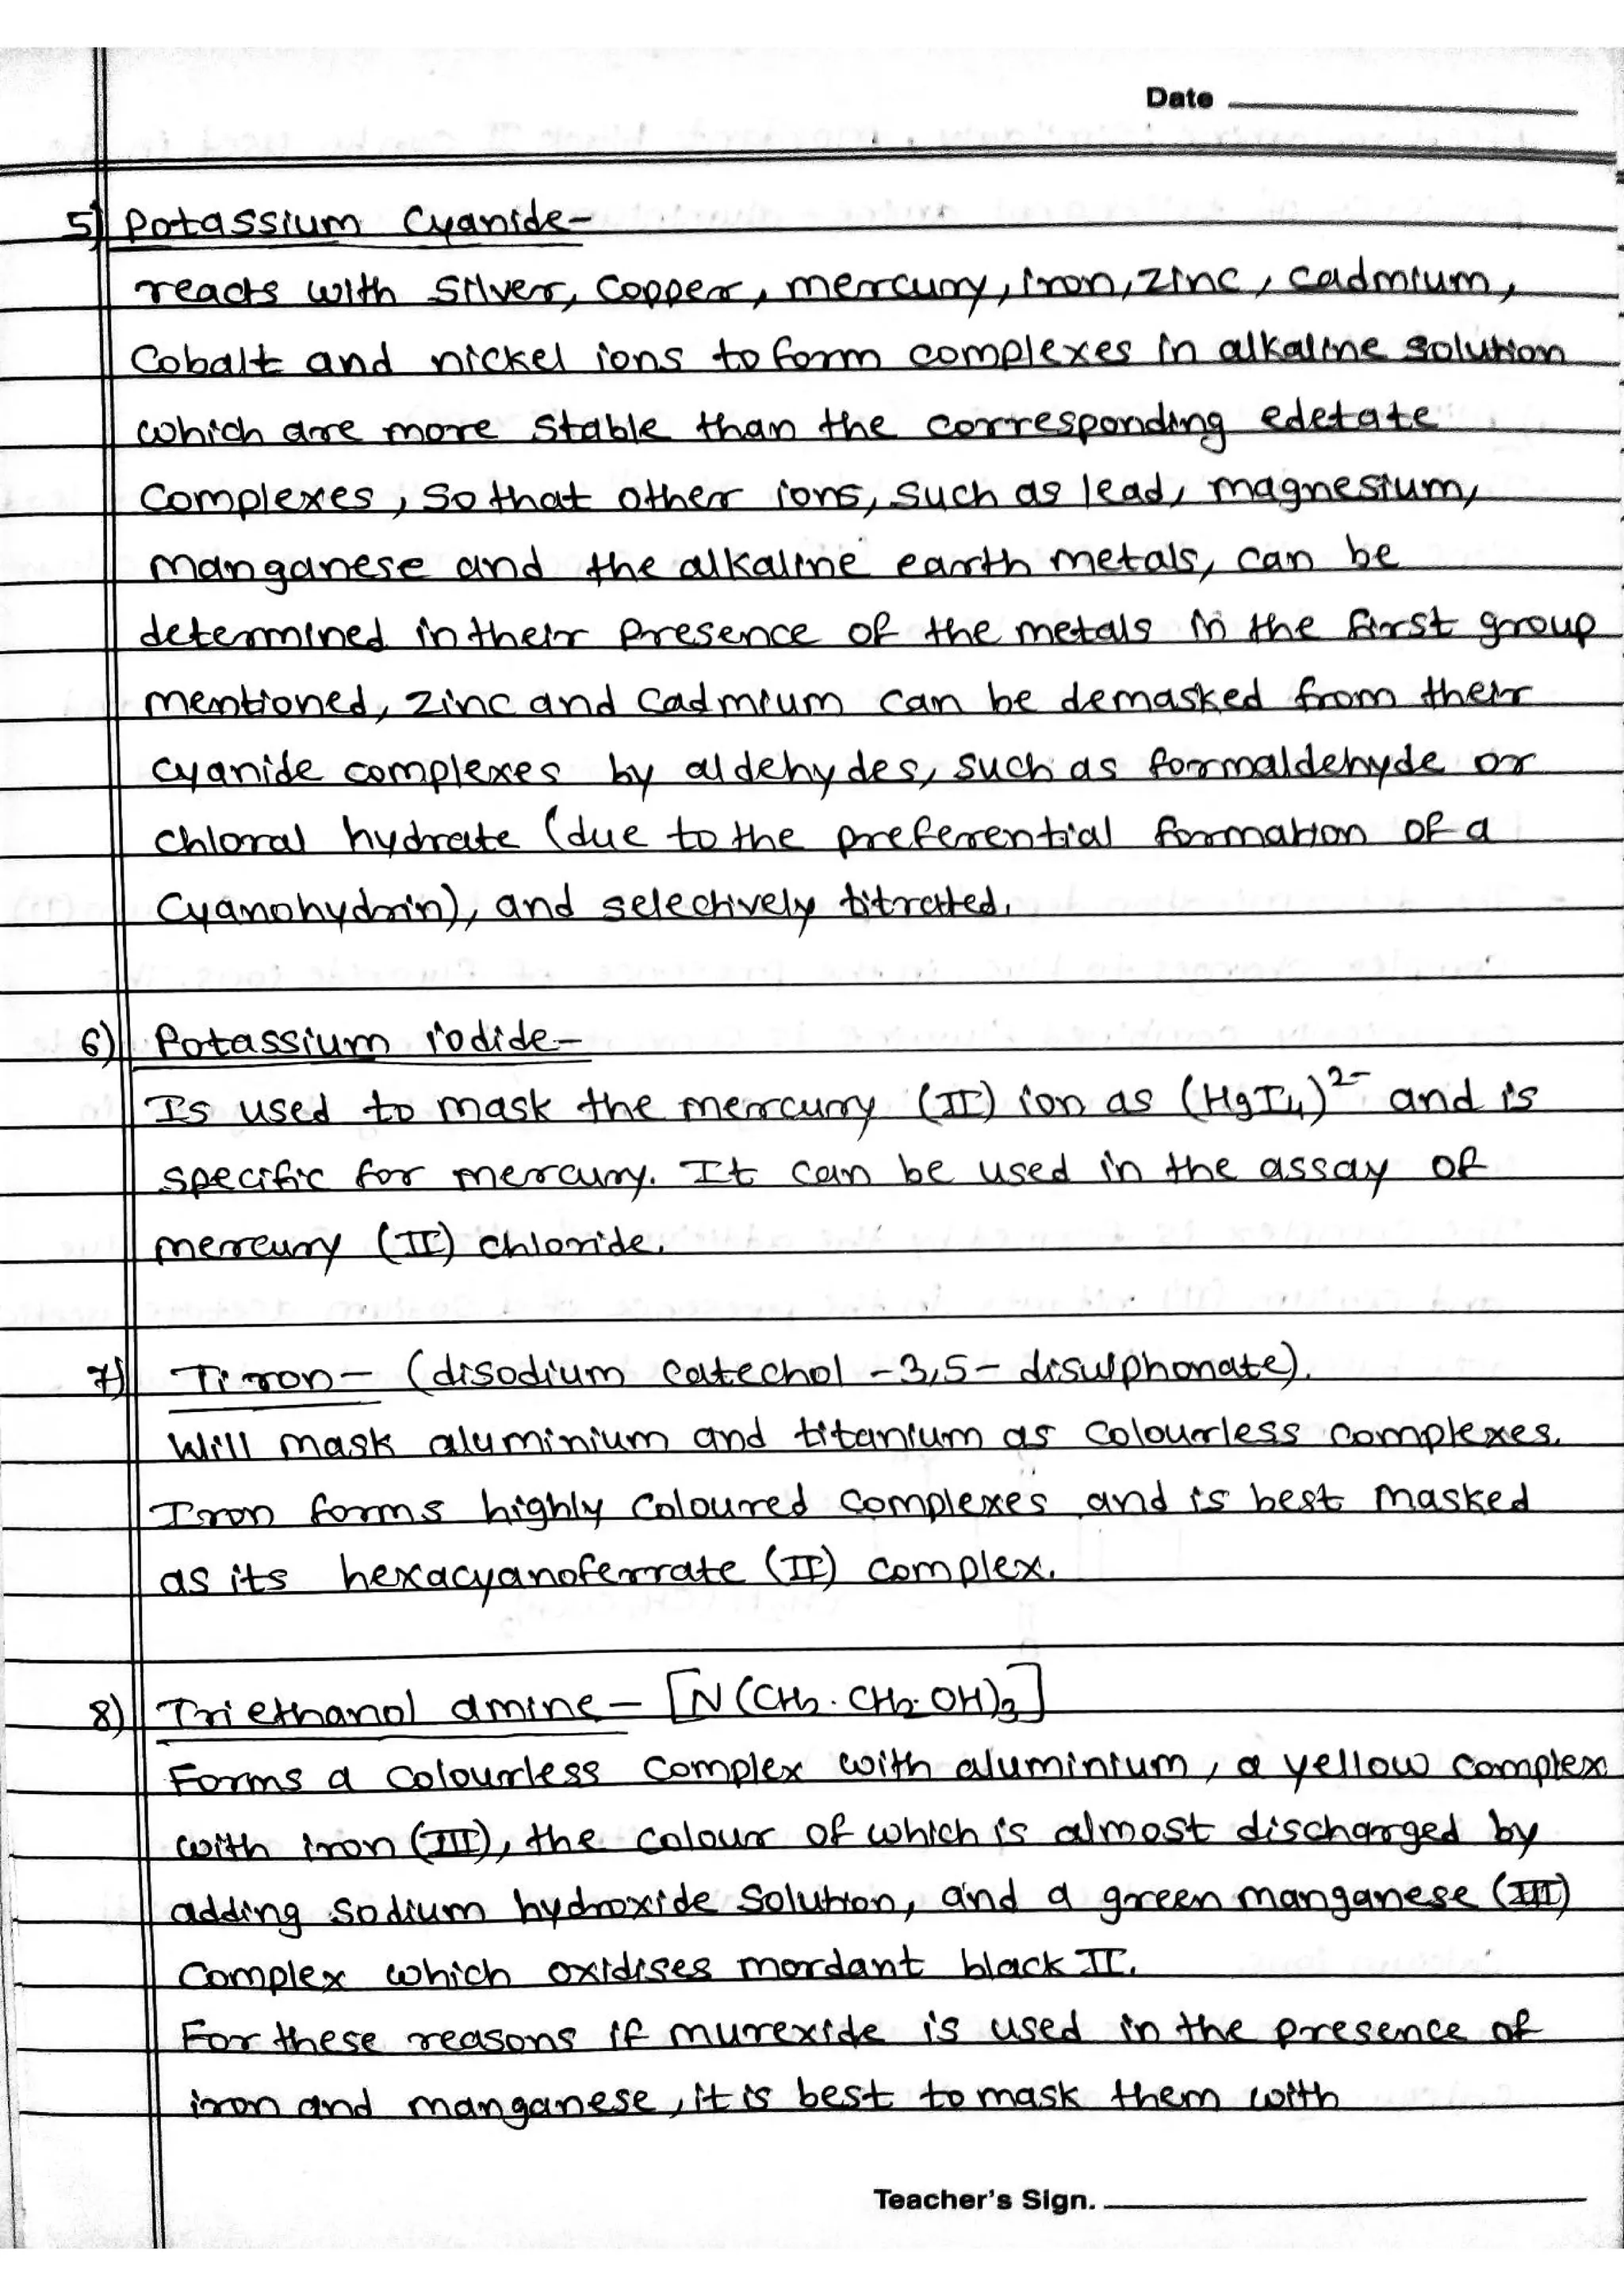 Date
5) Potassium Cyanide-
reacts with silver, copper, mercury, iron, zinc, cadmium,
Cobalt and nickel ions to form complexes in alkaline solution
which are more stable than the corresponding edetate
complexes, so that other ions, such as lead, magnesium,
manganese and the alkaline earth metals, can be
determined in their presence of the metals in the first group
mentioned, zinc and cadmium can be demasked from their
cyanide complexes by aldehydes, such as formaldehyde or
chloral hydrate (due to the preferential formation of a
Cyanohydrin), and selectively titrated.
6) Potassium iodide-
Is used to mask the mercury (II) ion as (HgI₄)²⁻ and is
specific for mercury. It can be used in the assay of
mercury (II) chloride.
7) Tiron- (disodium catechol -3,5- disulphonate).
Will mask aluminium and titanium as colourless complexes.
Iron forms highly coloured complexes and is best masked
as its hexacyanoferrate (II) complex.
8) Triethanol amine- [N(CH₂.CH₂.OH)₃]
Forms a colourless complex with aluminium, a yellow complex
with iron (III), the colour of which is almost discharged by
adding sodium hydroxide solution, and a green manganese (III)
complex which oxidises mordant black II.
For these reasons if murexide is used in the presence of
iron and manganese, it is best to mask them with
Teacher's Sign.